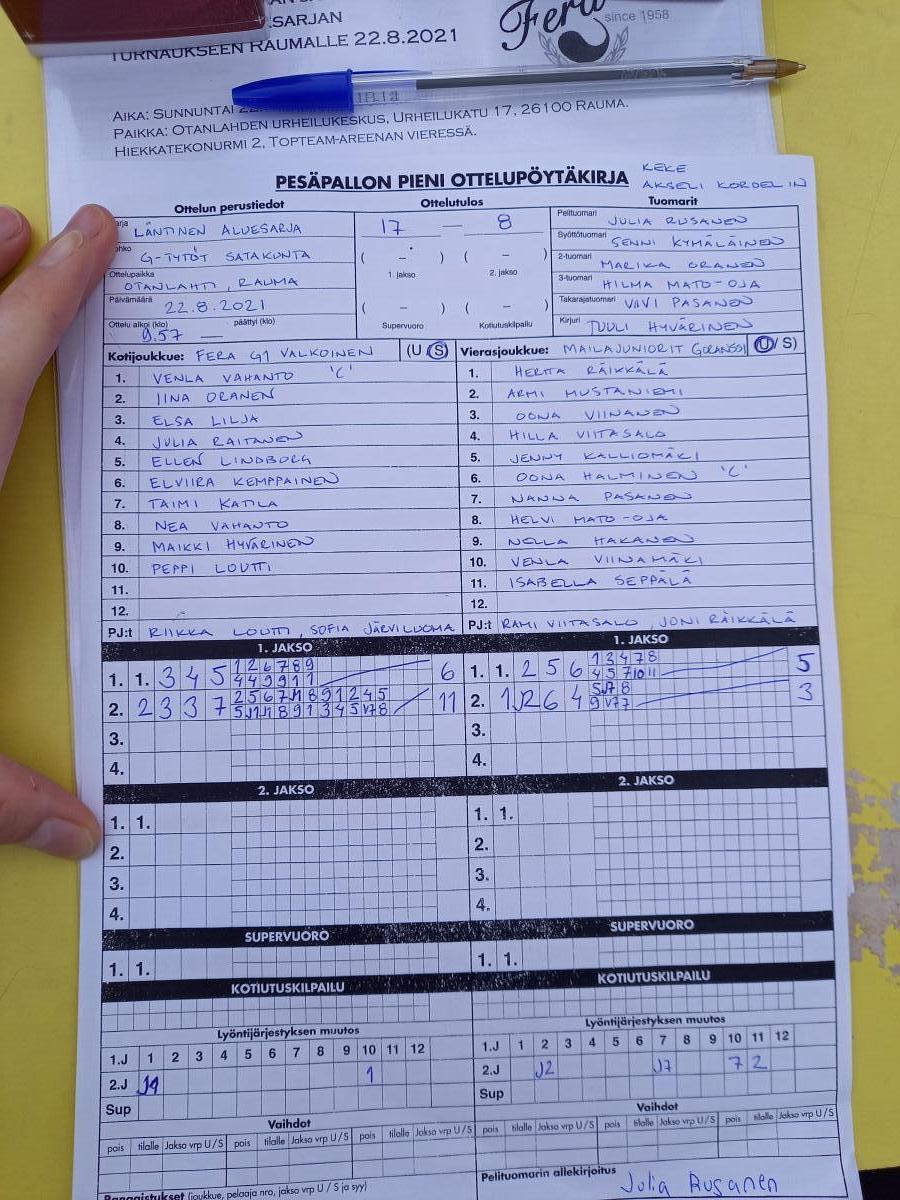 .SARJAN
TURNAUKSEEN RAUMALLE 22.8.2021
Fera
since 1958
AIKA: SUNNUNTAI 22.
PAIKKA: OTANLAHDEN URHEILUKESKUS, URHEILUKATU 17, 26100 RAUMA.
HIEKKATEKONURMI 2, TOPTEAM-AREENAN VIERESSÄ.
PESÄPALLON PIENI OTTELUPÖYTÄKIRJA
KEKE
AKSELI KORDELIN
Ottelun perustiedot
Ottelutulos
Tuomarit
arja LÄNTINEN ALUESARJA
17 — 8
Pelituomari JULIA RUSANEN
ohko G-TYTÖT SATAKUNTA
( – ) ( – )
Syöttötuomari SENNI KYMÄLÄINEN
Ottelupaikka OTANLAHTI, RAUMA
1. jakso 2. jakso
2-tuomari MARIKA ORANEN
3-tuomari HILMA MATO-OJA
Päivämäärä 22.8.2021
( – ) ( – )
Takarajatuomari VIIVI PASANEN
Ottelu alkoi (klo) 9.57 — päättyi (klo)
Supervuoro Kotiutuskilpailu
Kirjuri TUULI HYVÄRINEN
Kotijoukkue: FERA G1 VALKOINEN (U S)
Vierasjoukkue: MAILAJUNIORIT (U/ S)
1. VENLA VAHANTO 'C'
1. HERTTA RÄIKKÄLÄ
2. IINA ORANEN
2. ARMI MUSTANIEMI
3. ELSA LILJA
3. OONA VIINANEN
4. JULIA RAITANEN
4. HILLA VIITASALO
5. ELLEN LINDBORG
5. JENNY KALLIOMÄKI
6. ELVIIRA KEMPPAINEN
6. OONA HALMINEN 'C'
7. TAIMI KATILA
7. NANNA PASANEN
8. NEA VAHANTO
8. HELVI MATO-OJA
9. MAIKKI HYVÄRINEN
9. NELLA HAKANEN
10. PEPPI LOUTTI
10. VENLA VIINAMÄKI
11.
11. ISABELLA SEPPÄLÄ
12.
12.
PJ:t RIIKKA LOUTTI, SOFIA JÄRVILUOMA
PJ:t RAMI VIITASALO, JONI RÄIKKÄLÄ
1. JAKSO
1. JAKSO
1. 1. 3 4 5 126789 449911 6
1. 1. 2 5 6 13478 4571011 5
2. 2 3 3 7 11
2. 6 4 3
3.
3.
4.
4.
2. JAKSO
2. JAKSO
1. 1.
1. 1.
2.
2.
3.
3.
4.
4.
SUPERVUORO
SUPERVUORO
1. 1.
1. 1.
KOTIUTUSKILPAILU
KOTIUTUSKILPAILU
Lyöntijärjestyksen muutos
Lyöntijärjestyksen muutos
1.J 1 2 3 4 5 6 7 8 9 10 11 12
1.J 1 2 3 4 5 6 7 8 9 10 11 12
2.J 1
2.J J2 J7 7 2
Sup
Sup
Vaihdot
Vaihdot
pois tilalle Jakso vrp U / S pois tilalle Jakso vrp U / S pois tilalle Jakso vrp U / S
pois tilalle Jakso vrp U / S pois tilalle Jakso vrp U / S pois tilalle Jakso vrp U / S
Rangaistukset (joukkue, pelaaja nro, jakso vrp U / S ja syy)
Pelituomarin allekirjoitus
Julia Rusanen